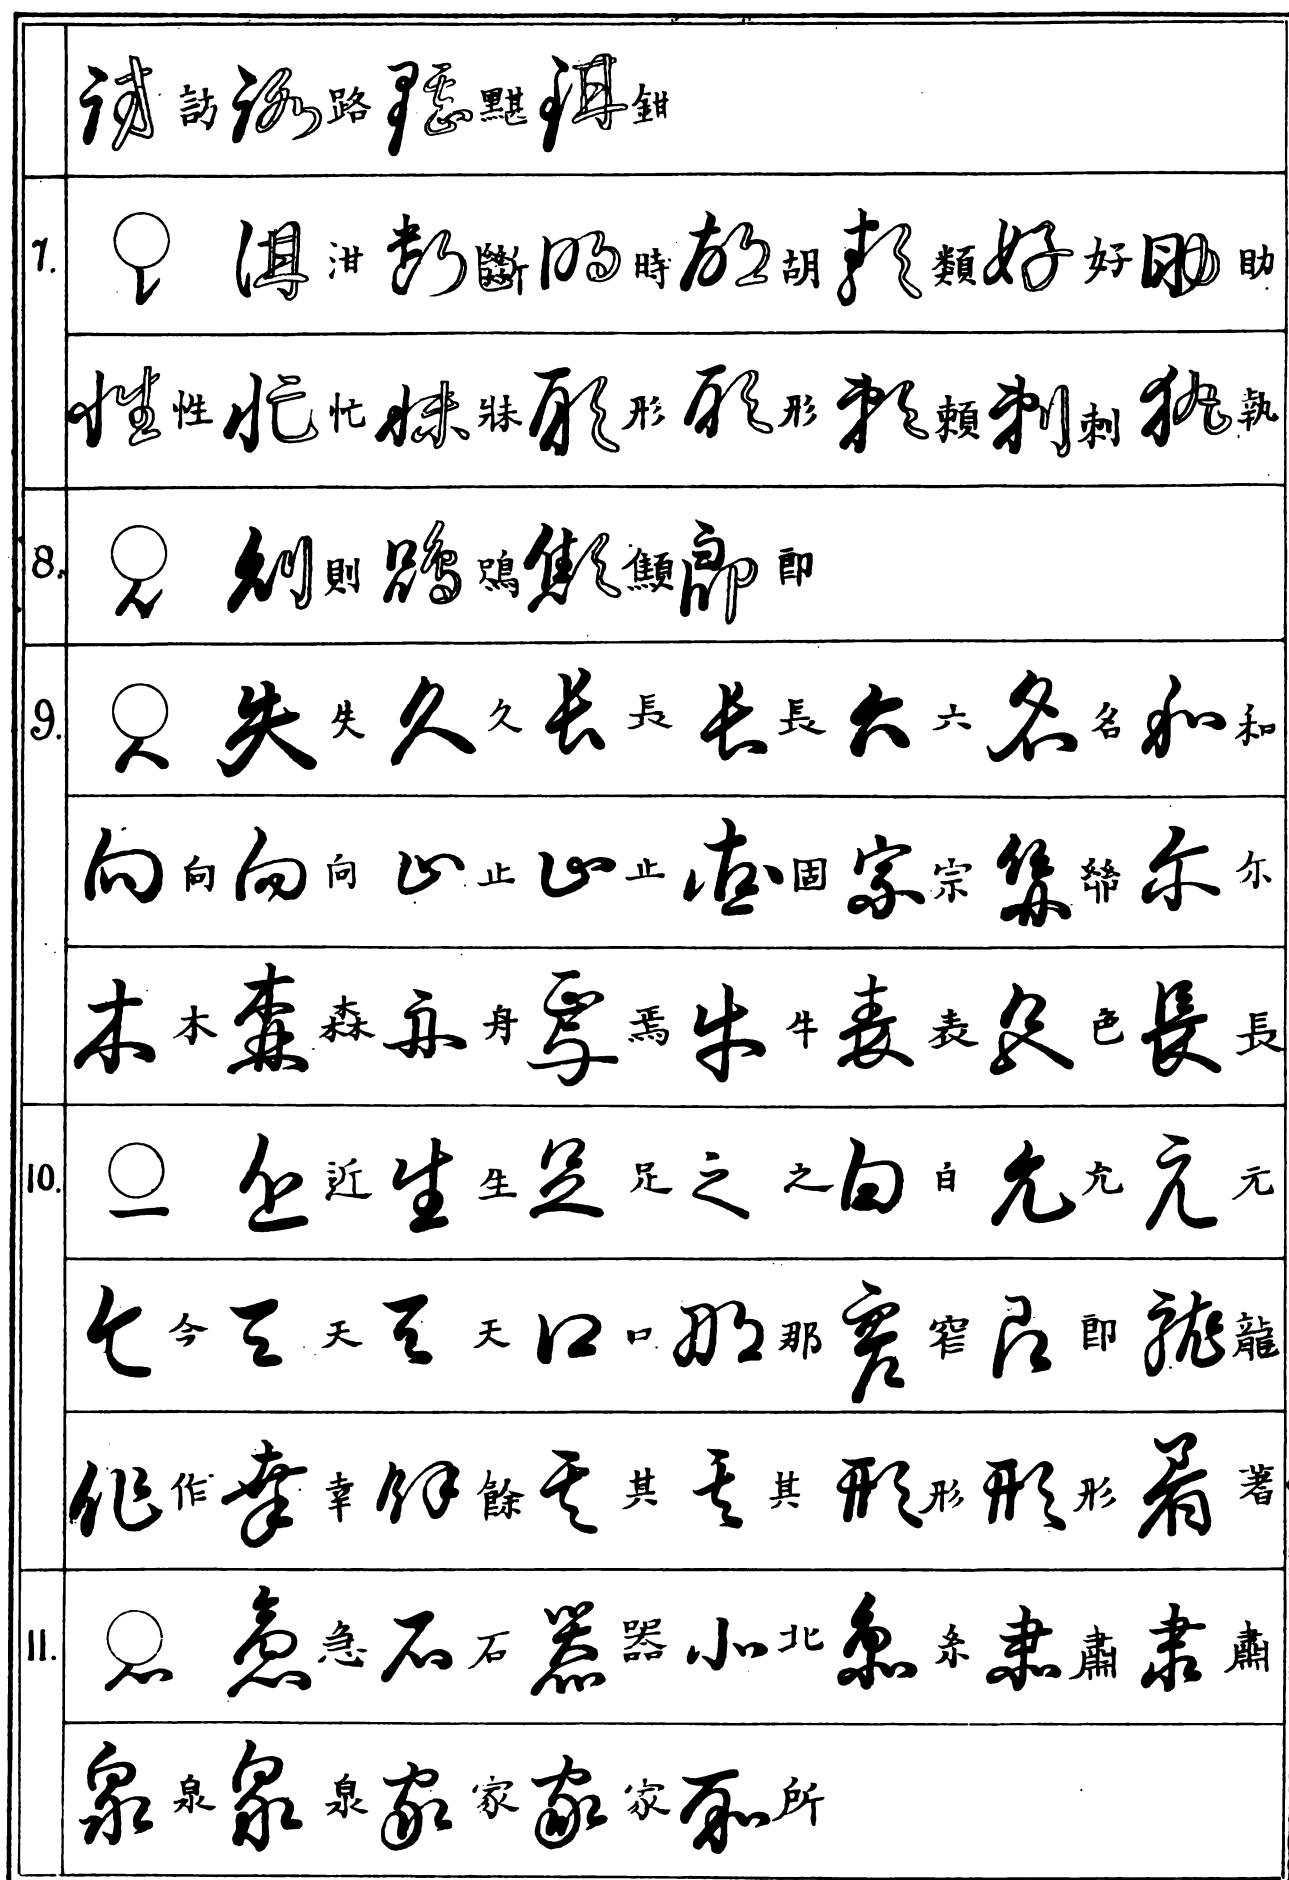 訪 路 黮 鉗
7. 泔 斷 時 胡 類 好 助
性 忙 牀 形 形 賴 刺 執
8. 則 鴞 顦 即
9. 失 久 長 長 六 名 和
向 向 止 止 固 宗 尔
木 森 舟 焉 牛 表 色 長
10. 近 生 足 之 自 允 元
今 天 天 口 那 窄 即 龍
作 幸 餘 其 其 形 形 著
11. 急 石 器 北 系 肅 肅
泉 泉 家 家 所